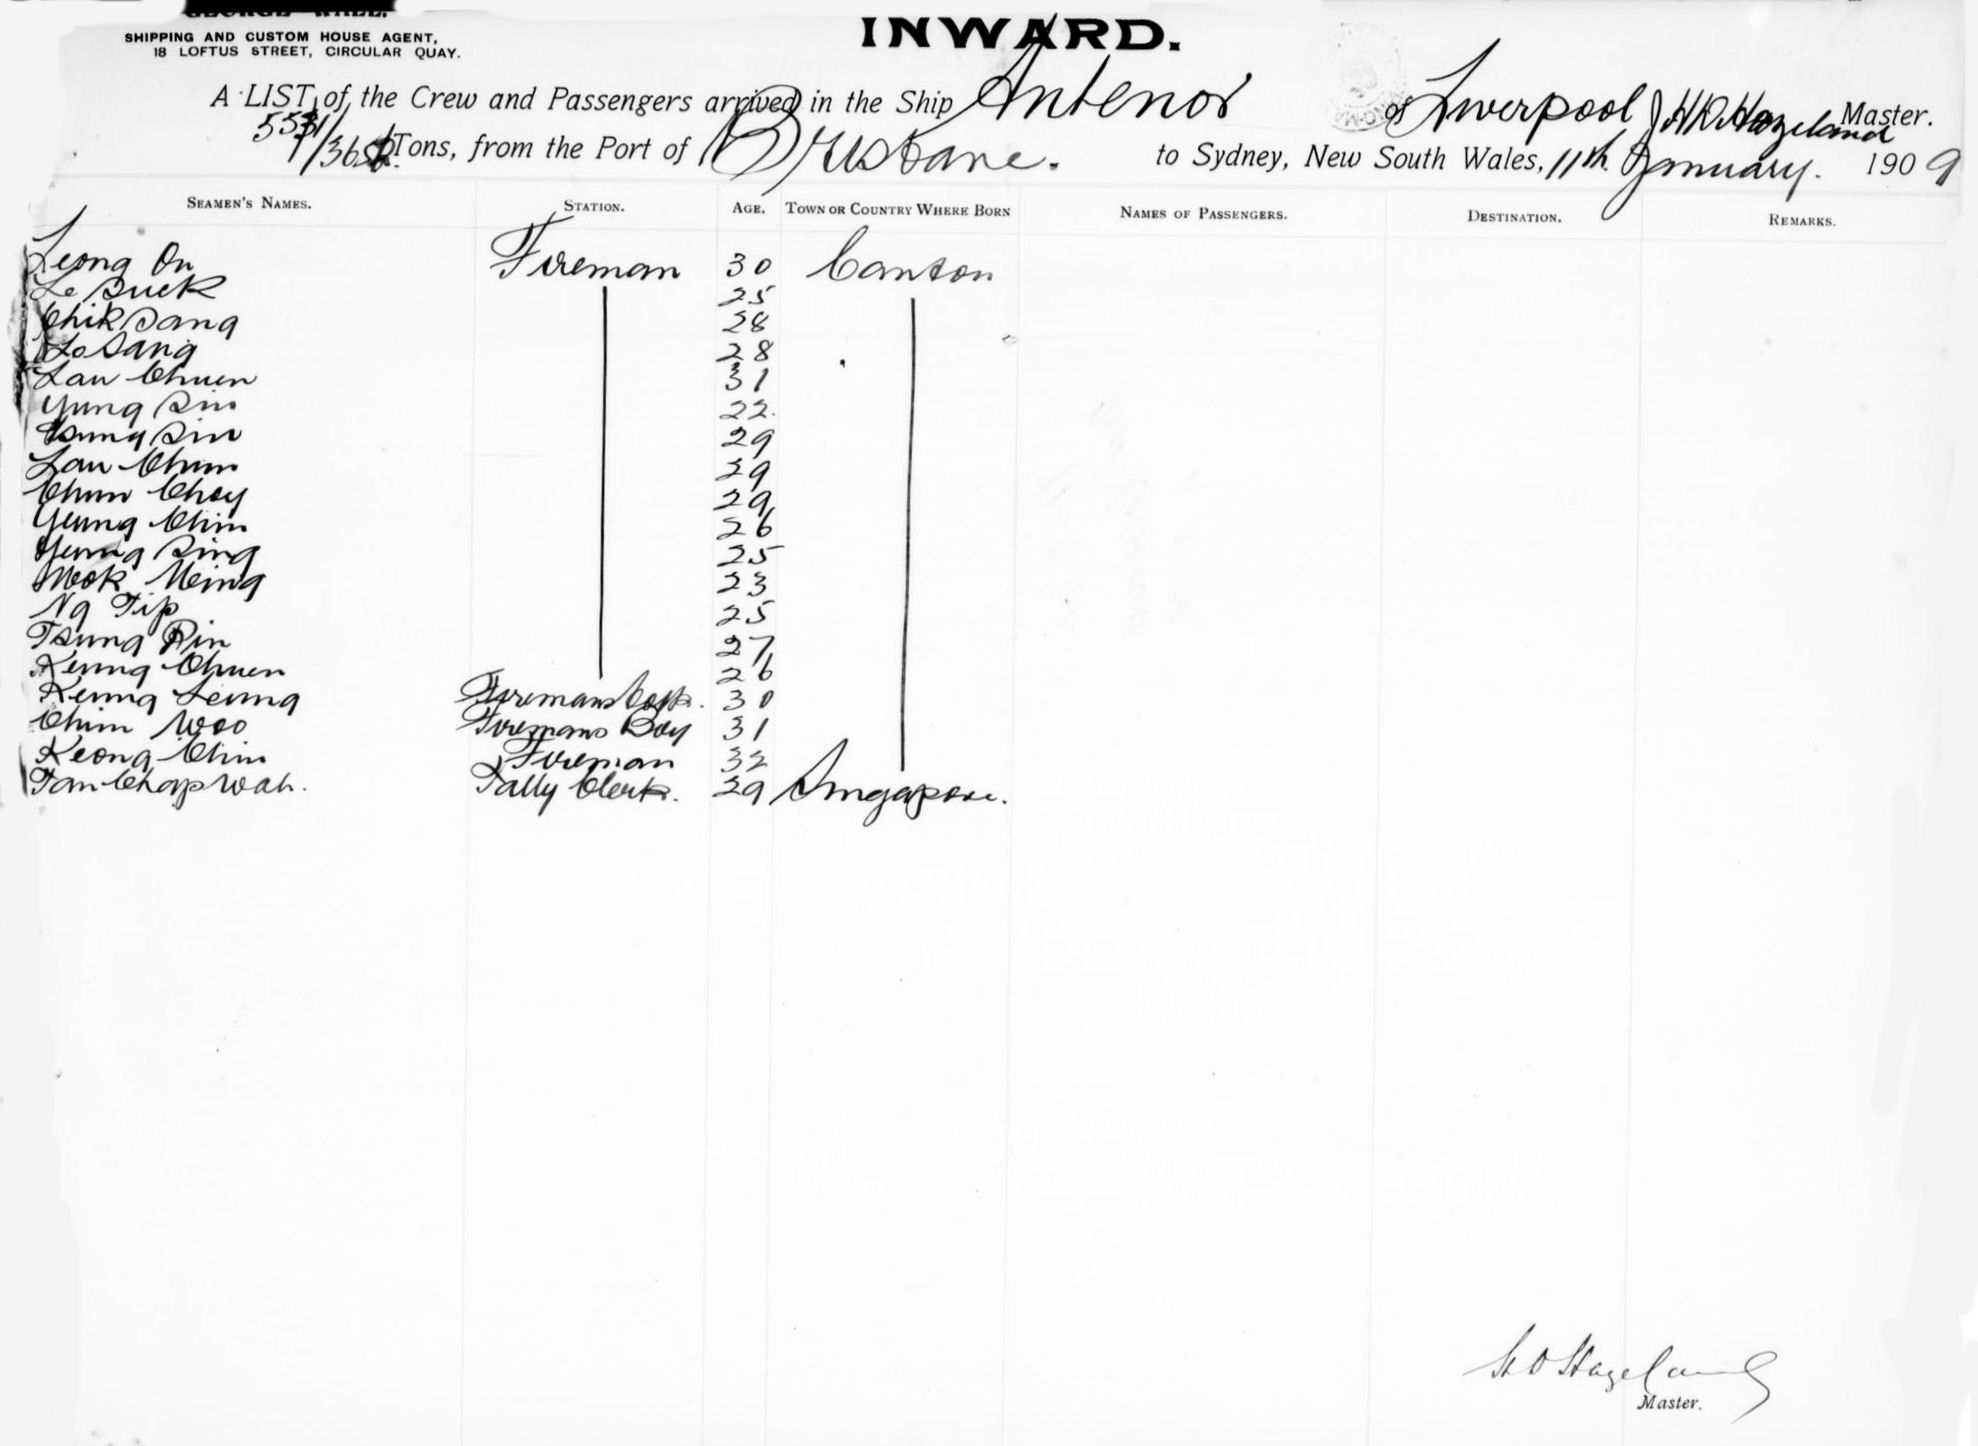 SHIPPING AND CUSTOM HOUSE AGENT,
18 LOFTUS STREET, CIRCULAR QUAY.
INWARD.
A LIST of the Crew and Passengers arrived in the Ship Antenor of Liverpool Hazeland Master.
Tons, from the Port of Brisbane. to Sydney, New South Wales, 11th January. 1909
SEAMEN'S NAMES. STATION. AGE. TOWN OR COUNTRY WHERE BORN NAMES OF PASSENGERS. DESTINATION. REMARKS.
Leong On Fireman 30 Canton
Le Suck 25
Chik Sang 28
Lo Sang 28
Lau Chuen 31
Yung Sin 22.
Sin 29
Lau Chun 29
Chun Choy 29
Yeung Chin 26
Yeung Sing 25
Mok Ming 23
Ng Tip 25
Tsung 27
Keung Chuen 26
Keung Leung Firemans Cook. 30
Chim Woo Firemans Boy 31
Keong Chim Fireman 32
Tan Chap Wah. Tally Clerk. 29 Singapore.
Hazeland
Master.